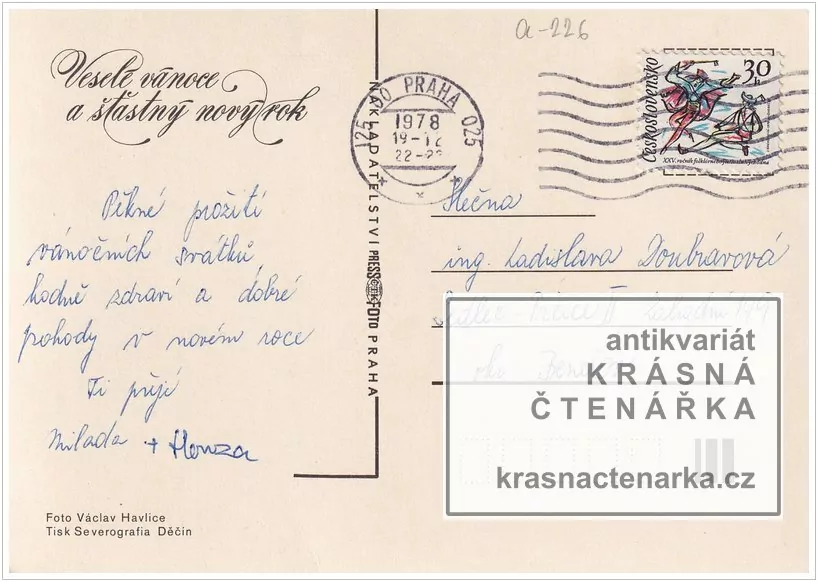 a-226
Veselé vánoce
a šťastný nový rok
PRAHA 025
1978
19-12
125
30
h
Československo
NAKLADATELSTVÍ PRESSFOTO PRAHA
Pěkné prožití
vánočních svátků
hodně zdraví a dobré
pohody v novém roce
Ti přejí
Milada + Honza
Slečna
ing. Ladislava Doubravová
antikvariát
KRÁSNÁ
ČTENÁŘKA
krasnactenarka.cz
Foto Václav Havlice
Tisk Severografia Děčín